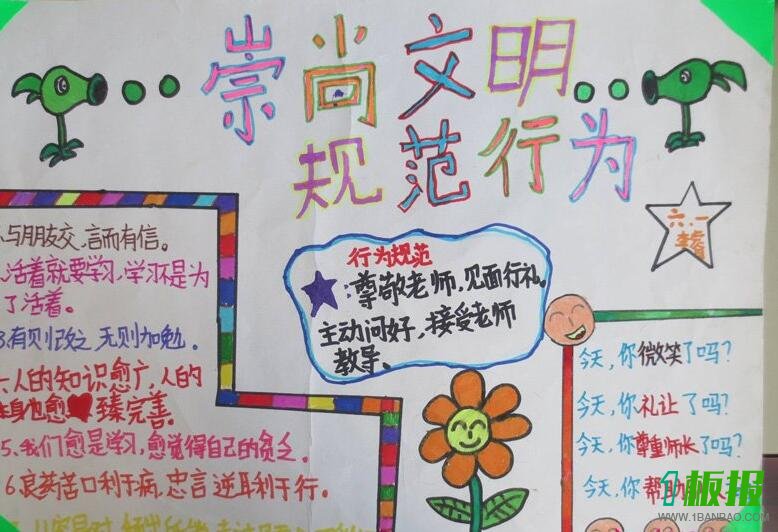 崇尚文明
规范行为
六.一
李睿
与朋友交,言而有信。
活着就要学习,学习不是为
了活着。
3.有则改之,无则加勉。
人的知识愈广,人的
本身也愈臻完善。
5、我们愈是学习,愈觉得自己的贫乏。
6.良药苦口利于病,忠言逆耳利于行。
行为规范
尊敬老师,见面行礼。
主动问好,接受老师
教导。
今天,你微笑了吗?
今天,你礼让了吗?
今天,你尊重师长了吗?
今天,你帮助
1板报
WWW.1BANBAO.COM